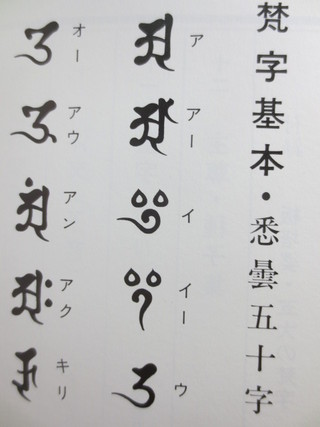 梵字基本・悉曇五十字
𑖀 ア
𑖁 アー
𑖂 イ
𑖃 イー
𑖄 ウ
𑖌 オー
𑖍 アウ
𑖀𑖽 アン
𑖀𑖾 アク
キリ